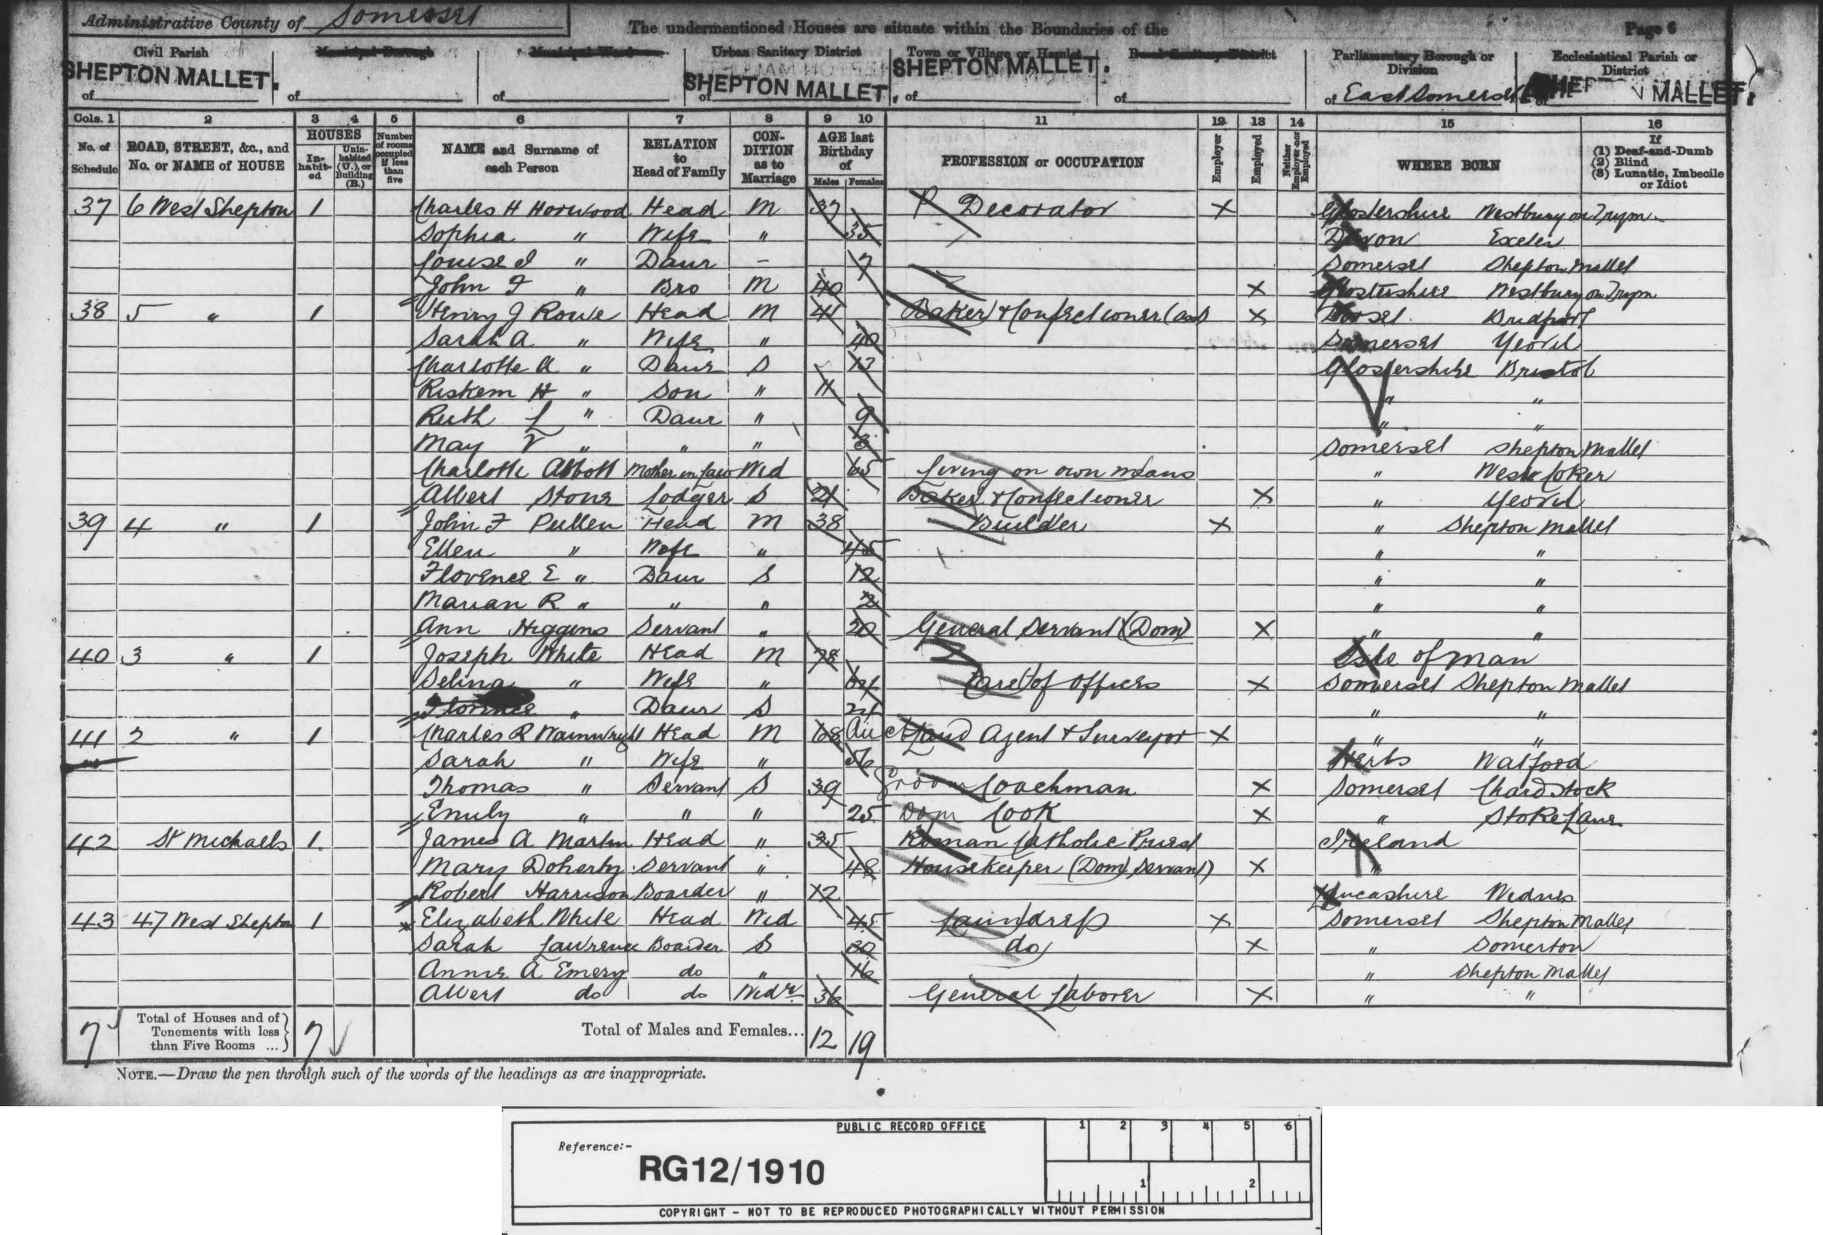 Administrative County of Somerset
The undermentioned Houses are situate within the Boundaries of the
Page 6
Civil Parish Municipal Borough Municipal Ward Urban Sanitary District Town or Village or Hamlet Rural Sanitary District Parliamentary Borough or Division Ecclesiastical Parish or District
of SHEPTON MALLET. of of of SHEPTON MALLET of SHEPTON MALLET. of of East Somerset of SHEP MALLET.
Cols. 1 2 3 4 5 6 7 8 9 10 11 12 13 14 15 16
No. of Schedule ROAD, STREET, &c., and No. or NAME of HOUSE HOUSES Inhabited Uninhabited (U.), or Building (B.) Number of rooms occupied if less than five NAME and Surname of each Person RELATION to Head of Family CONDITION as to Marriage AGE last Birthday of Males Females PROFESSION or OCCUPATION Employer Employed Neither Employer nor Employed WHERE BORN If (1) Deaf-and-Dumb (2) Blind (3) Lunatic, Imbecile or Idiot
37 6 West Shepton 1 Charles H Horwood Head M 37 Decorator X Glostershire Westbury on Trym
Sophia " Wife " 35 Devon Exeter
Louise I " Daur - 7 Somerset Shepton Mallet
John F " Bro M 40 X Glostershire Westbury on Trym
38 5 " 1 Henry J Rowe Head M 41 Baker & Confectioner X Dorset Bridport
Sarah A " Wife " 40 Somerset Yeovil
Charlotte A " Daur S 13 Glostershire Bristol
Riskem H " Son " 11 " "
Ruth L " Daur " 9 " "
May V " " " Somerset Shepton Mallet
Charlotte Abbott Mother in Law Wid 65 Living on own means " West Coker
Albert Stone Lodger S 21 Baker & Confectioner X " Yeovil
39 4 " 1 John F Pullen Head M 38 Builder X " Shepton Mallet
Ellen " Wife " 45 " "
Florence E " Daur S 12 " "
Marian R " " " 2 " "
Ann Higgins Servant " 20 General Servant (Dom) X " "
40 3 " 1 Joseph White Head M 78 Isle of Man
Selina " Wife " 64 Care of Offices X Somerset Shepton Mallet
Florence " Daur S 24 " "
41 2 " 1 Charles R Wainwright Head M 68 Auct Land Agent & Surveyor X " "
Sarah " Wife " 56 Herts Watford
Thomas " Servant S 39 Groom Coachman X Somerset Chardstock
Emily " " " 25 Dom Cook X " Stoke Lane
42 St Michaels 1 James A Martin Head " 35 Roman Catholic Priest Ireland
Mary Doherty Servant " 48 Housekeeper (Dom Servant) X "
Robert Harrison Boarder " 12 Lancashire Widnes
43 47 West Shepton 1 Elizabeth White Head Wid 45 Laundress X Somerset Shepton Mallet
Sarah Lawrence Boarder S 20 do X " Somerton
Annie A Emery do " 16 " Shepton Mallet
Albert do do Widr 36 General Laborer X " "
7 Total of Houses and of Tenements with less than Five Rooms ... 7 Total of Males and Females... 12 19
NOTE.—Draw the pen through such of the words of the headings as are inappropriate.
PUBLIC RECORD OFFICE 1 2 3 4 5 6
Reference:-
RG12/1910
1 2
COPYRIGHT - NOT TO BE REPRODUCED PHOTOGRAPHICALLY WITHOUT PERMISSION